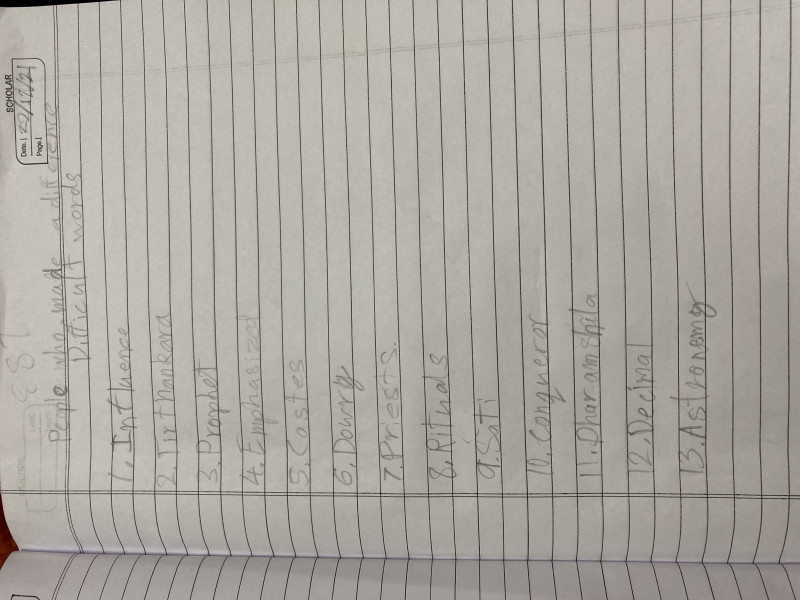 SCHOLAR
Date: 22/12/21
Page:
EST
People who made a difference
Difficult words
1. Influence
2. Tirthankara
3. Prophet
4. Emphasized
5. Castes
6. Dowry
7. Priests.
8. Rituals
9. Sati
10. Conqueror
11. Dharamshila
12. Decimal
13. Astronomy